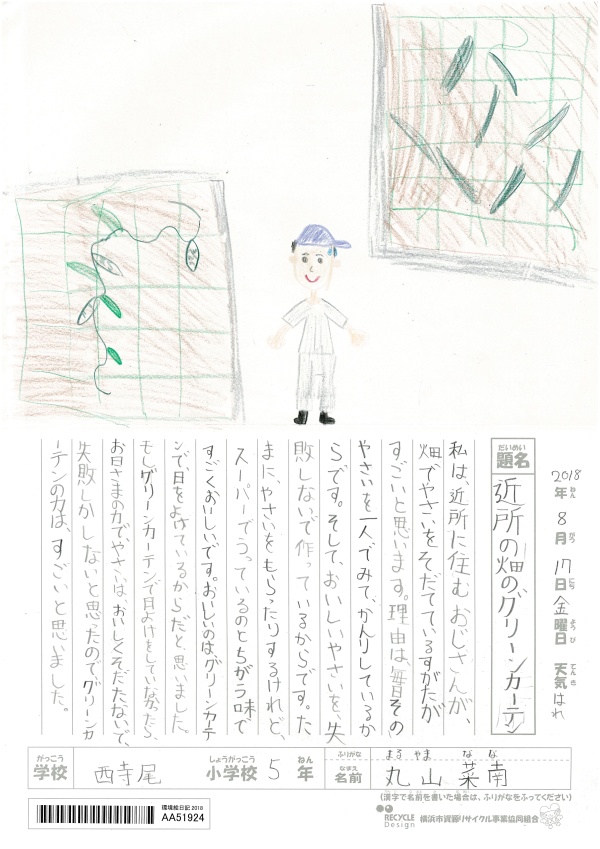 2018年ねん 8月がつ 17日にち 金曜日ようび 天気てんき はれ
題名だいめい 近所の畑のグリーンカーテン
私は、近所に住むおじさんが、
畑でやさいをそだてているすがたが
すごいと思います。理由は、毎日その
やさいを一人でみて、かんりしているか
らです。そして、おいしいやさいを、失
敗しないで作っているからです。た
まに、やさいをもらったりするけれど、
スーパーでうっているのとちがう味で
すごくおいしいです。おいしいのはグリーンカーテ
ンで、日をよけているからだと、思いました。
もしグリーンカーテンで日よけをしていなかったら、
お日さまの力で、やさいは、おいしくそだたないで、
失敗しかしないと思ったのでグリーンカ
ーテンの力は、すごいと思いました。
学校がっこう 西寺尾 小学校しょうがっこう 5年ねん
ふりがな まるやま なな
名前なまえ 丸山 菜南
(漢字で名前を書いた場合は、ふりがなをふってください)
環境絵日記2018
AA51924
RECYCLE Design 横浜市資源リサイクル事業協同組合